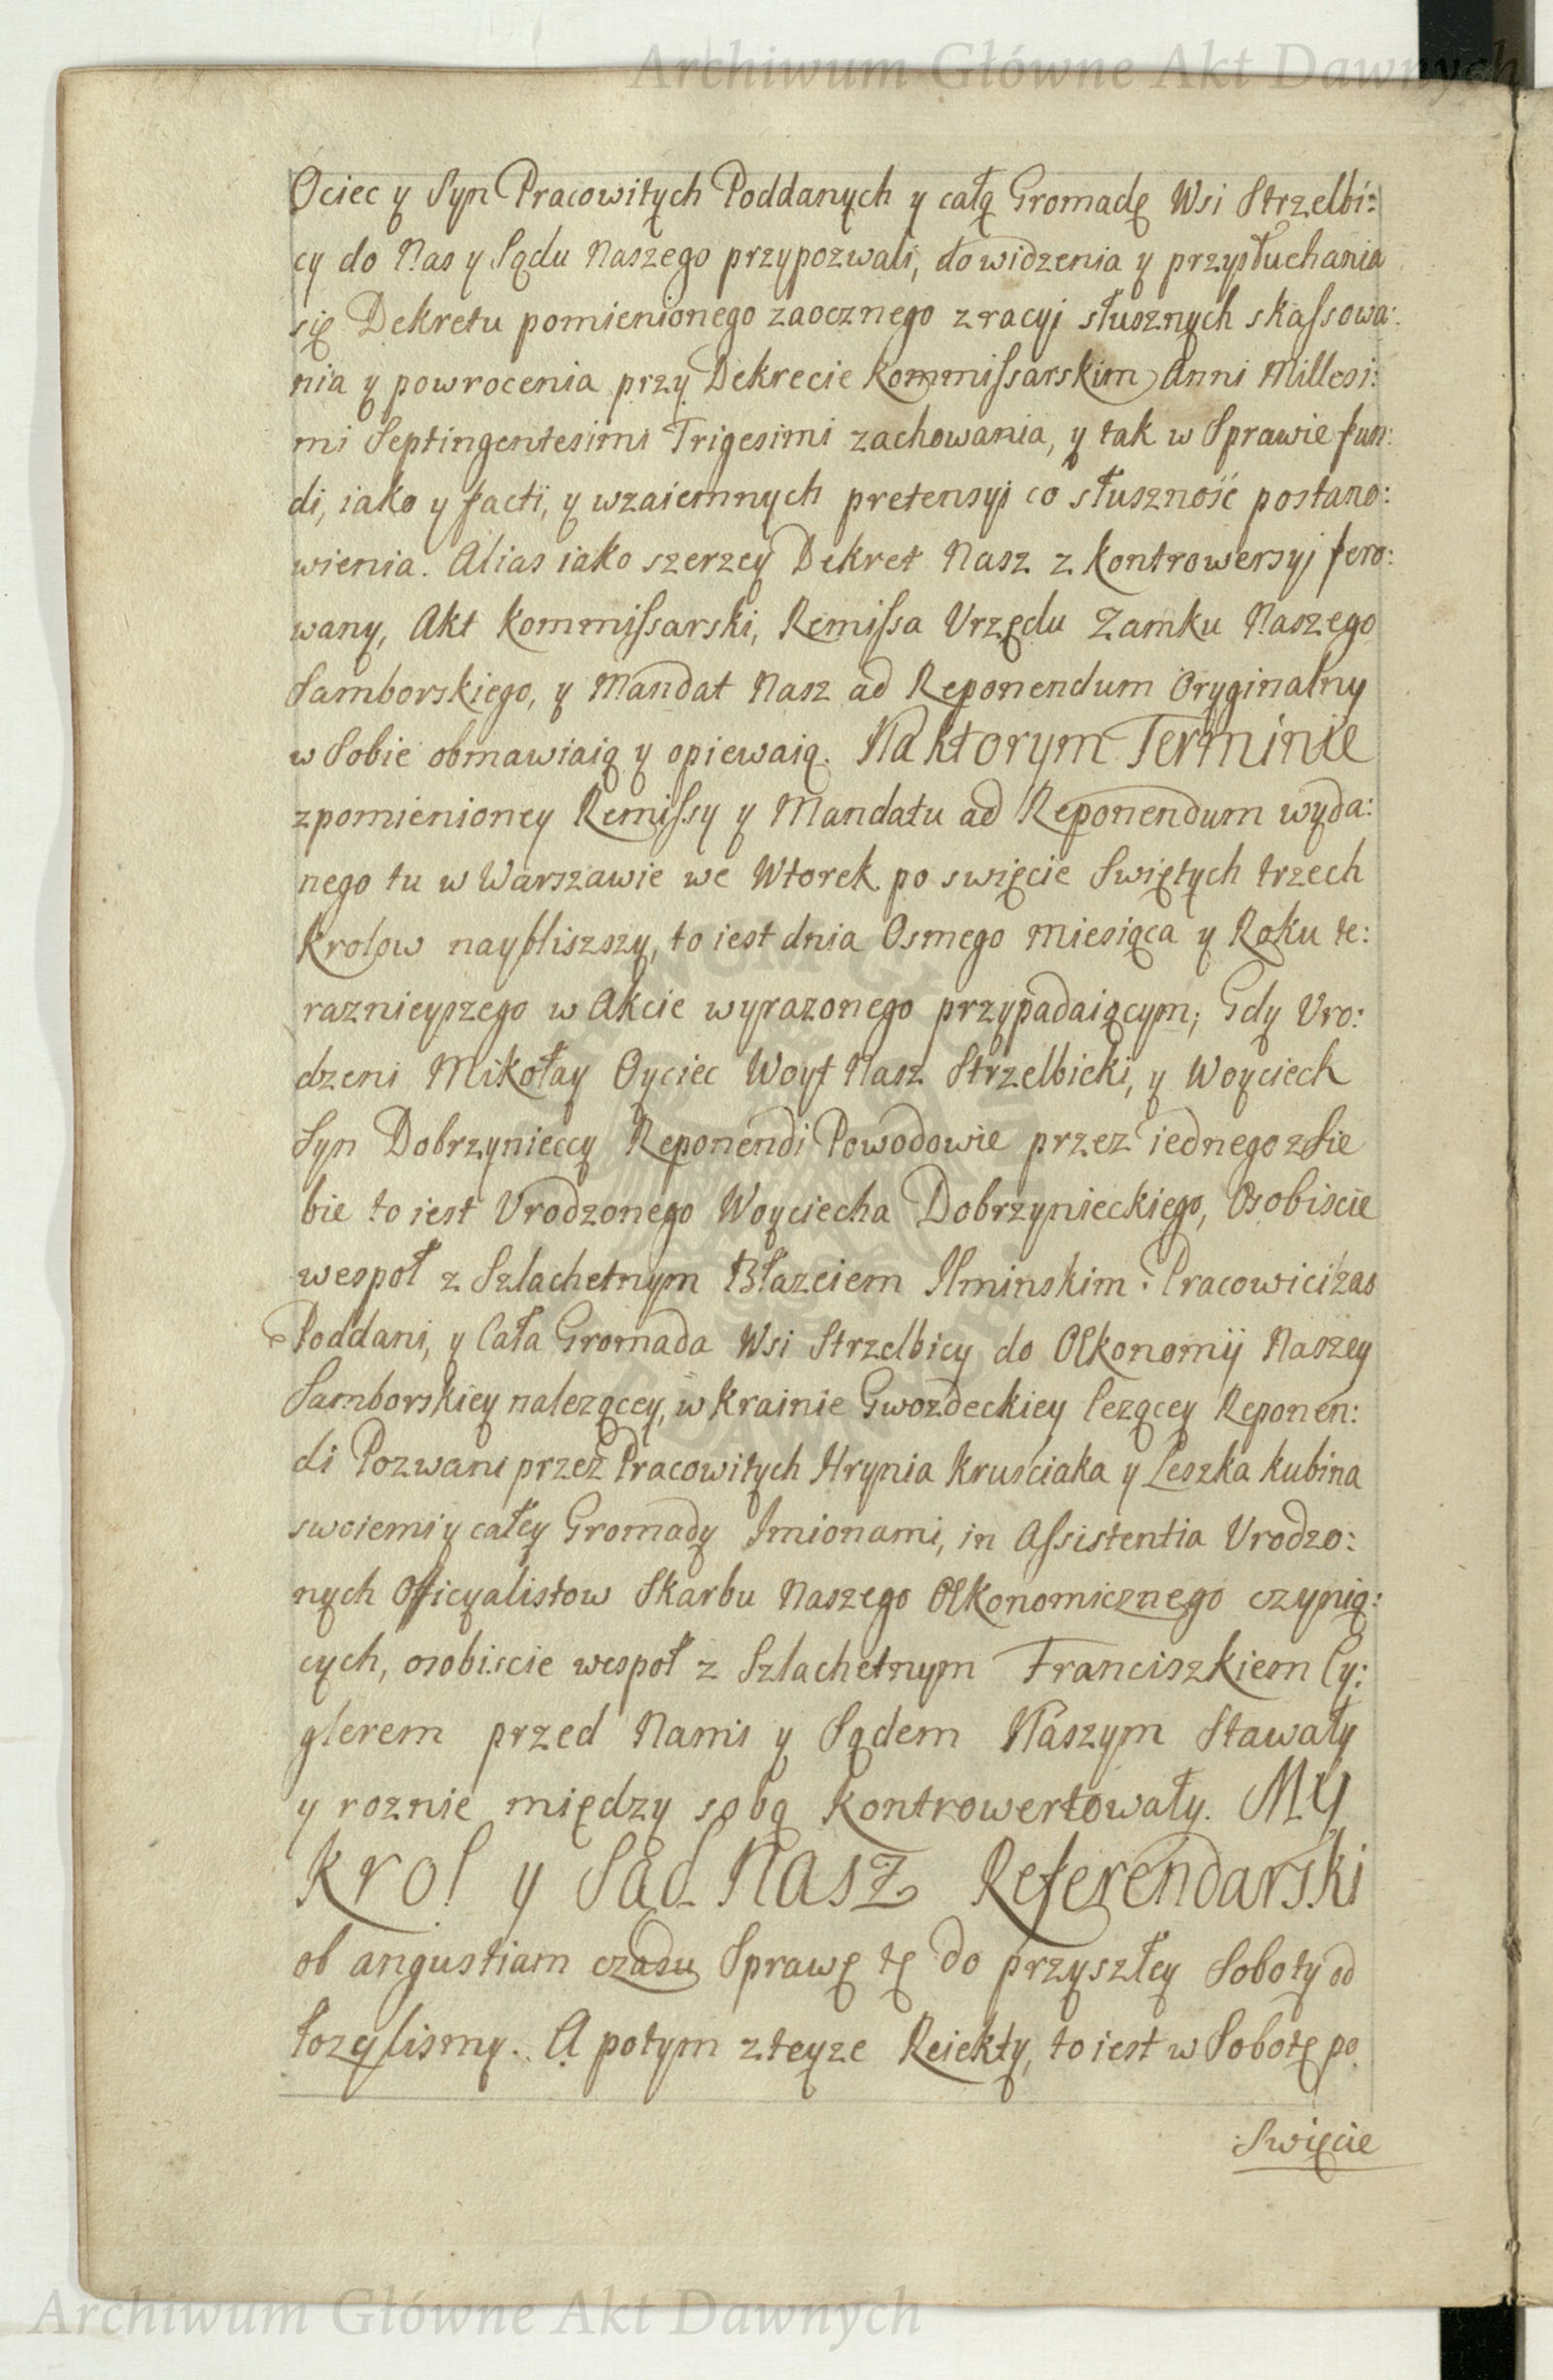 Archiwum Główne Akt Dawnych
Ociec y Syn Pracowitych Poddanych y całą Gromadę Wsi Strzelbi:
cy do Nas y Sądu Naszego przypozwali, do widzenia y przysłuchania
się Dekretu pomienionego zaocznego z racyi słusznych skassowa:
nia y powrocenia przy Dekrecie Kommissarskim Anni Millesi:
mi Septingentesimi Trigesimi zachowania, y tak w Sprawie fun:
di, iako y facti, y wzaiemnych pretensyi co słuszność postano:
wienia. Alias iako szerzey Dekret Nasz z Kontrowersyi fero:
wany, Akt Kommissarski, Remissa Vrzędu Zamku Naszego
Samborskiego, y Mandat Nasz ad Reponendum Oryginalny
w Sobie obmawiaią y opiewaią. Na ktorym Terminie
z pomienioney Remissy y Mandatu ad Reponendum wyda:
nego tu w Warszawie we Wtorek po swięcie Swiętych trzech
Krolow naybliszszy, to iest dnia Osmego Miesiąca y Roku te:
raznieyszego w Akcie wyrazonego przypadaiącym; Gdy Vro:
dzeni Mikołay Oyciec Woyt Nasz Strzelbicki, y Woyciech
Syn Dobrzynieccy Reponendi Powodowie przez iednego z Sie
bie to iest Vrodzonego Woyciecha Dobrzynieckiego, Osobiscie
wespoł z Szlachetnym Błazeiem Ilminskim. Pracowici zas
Poddani, y Cała Gromada Wsi Strzelbicy do Œkonomij Naszey
Samborskiey nalezącey, w Krainie Gwozdeckiey lezącey Reponen:
di Pozwani przez Pracowitych Hrynia Krusciaka y Leszka Kubina
swoiemi y całey Gromady Imionami, in Assistentia Vrodzo:
nych Officyalistow Skarbu Naszego Œkonomicznego czynią:
cych, osobiscie wespoł z Szlachetnym Franciszkiem Cy:
glerem przed Nami y Sądem Naszym Stawały
y roznie między sobą Kontrowertowały. MY
Krol y Sąd Nasz Referendarski
ob angustiam czasu Sprawę tę do przyszłey Soboty od
łozylismy. A potym z teyze Reiekty, to iest w Sobotę po
Swięcie
Archiwum Główne Akt Dawnych